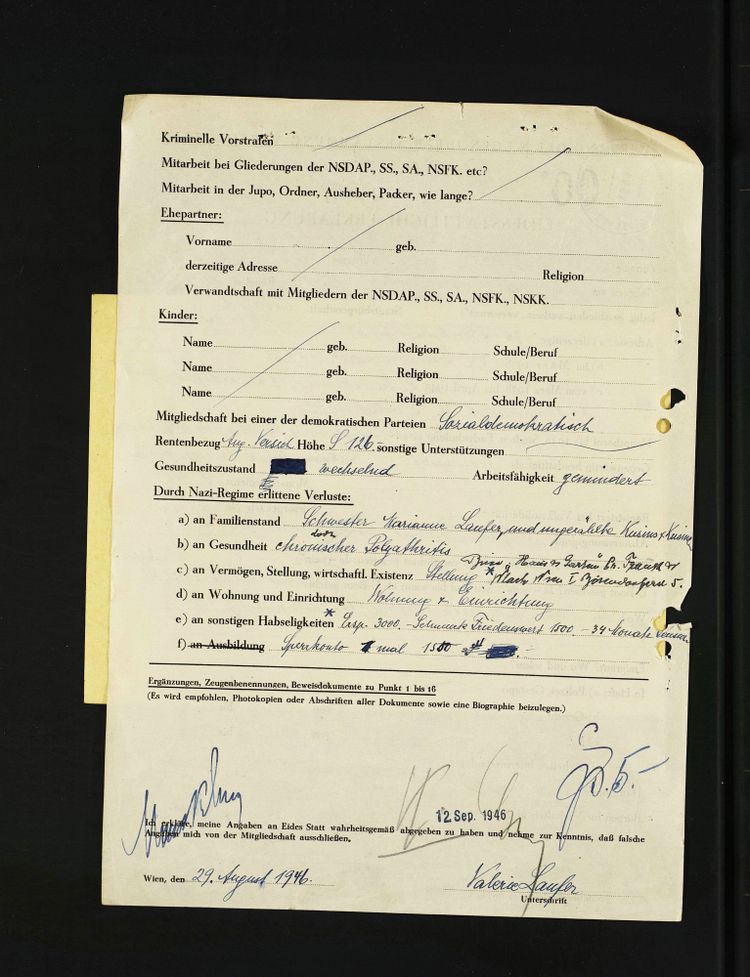 Kriminelle Vorstrafen
Mitarbeit bei Gliederungen der NSDAP., SS., SA., NSFK. etc?
Mitarbeit in der Jupo, Ordner, Ausheber, Packer, wie lange?
Ehepartner:
Vorname geb.
derzeitige Adresse Religion
Verwandtschaft mit Mitgliedern der NSDAP., SS., SA., NSFK., NSKK.
Kinder:
Name geb. Religion Schule/Beruf
Name geb. Religion Schule/Beruf
Name geb. Religion Schule/Beruf
Mitgliedschaft bei einer der demokratischen Parteien Sozialdemokratisch
Rentenbezug Ang. Höhe S 126.- sonstige Unterstützungen
Gesundheitszustand wechselnd Arbeitsfähigkeit gemindert
Durch Nazi-Regime erlittene Verluste:
a) an Familienstand Schwester Marianne Laufer, und ungezählte Kusins +
b) an Gesundheit chronischer Polyathritis
c) an Vermögen, Stellung, wirtschaftl. Existenz Stellung * Wien I Bösendorferst 5.
d) an Wohnung und Einrichtung Wohnung + Einrichtung
e) an sonstigen Habseligkeiten * Ersp. 3000.- Schmuck Friedenswert 1500 - 34 Monate
f) an Ausbildung Sperrkonto mal
Ergänzungen, Zeugenbenennungen, Beweisdokumente zu Punkt 1 bis 16
(Es wird empfohlen, Photokopien oder Abschriften aller Dokumente sowie eine Biographie beizulegen.)
12 Sep. 1946
Ich erkläre, meine Angaben an Eides Statt wahrheitsgemäß abgegeben zu haben und nehme zur Kenntnis, daß falsche
Angaben mich von der Mitgliedschaft ausschließen.
Wien, den 29. August 1946.
Valerie Laufer
Unterschrift